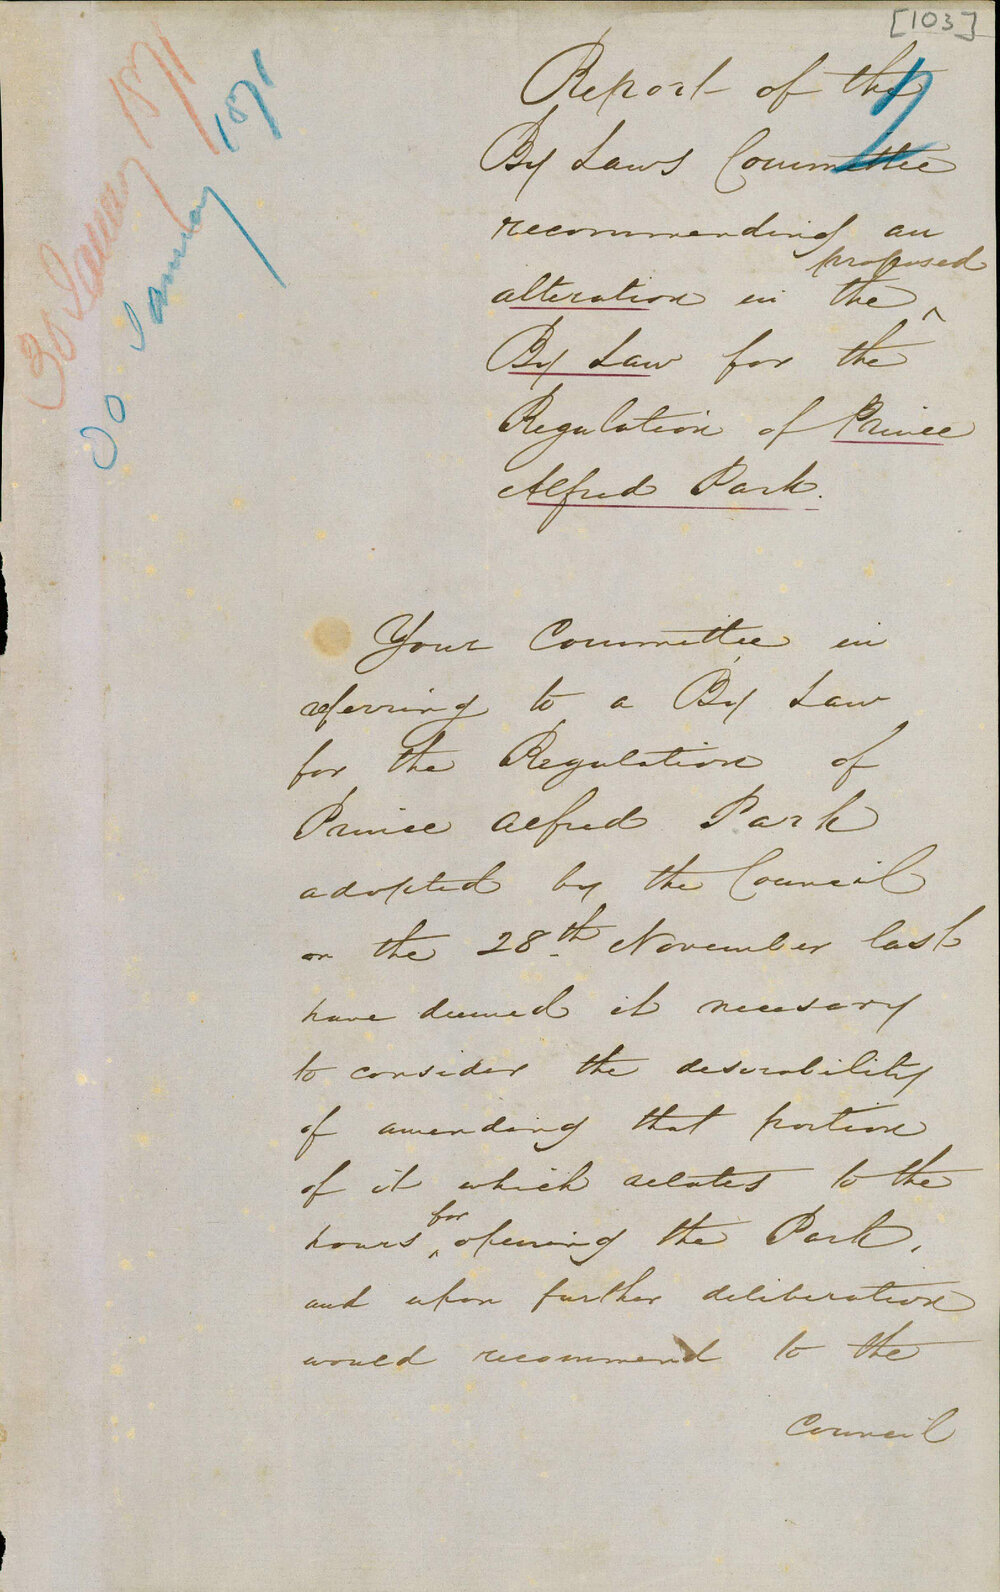 [103]
30 January 1871
30 January 1871
Report of the
By Laws Committee
recommending an
proposed
alteration in the ^
By Law for the
Regulation of Prince
Alfred Park.
Your Committee in
referring to a By Law
for the Regulation of
Prince Alfred Park
adopted by the Council
on the 28th November last
have deemed it necessary
to consider the desirability
of amending that portion
of it which relates to the
hours ^for opening the Park,
and upon further deliberation
would recommend to the
Council